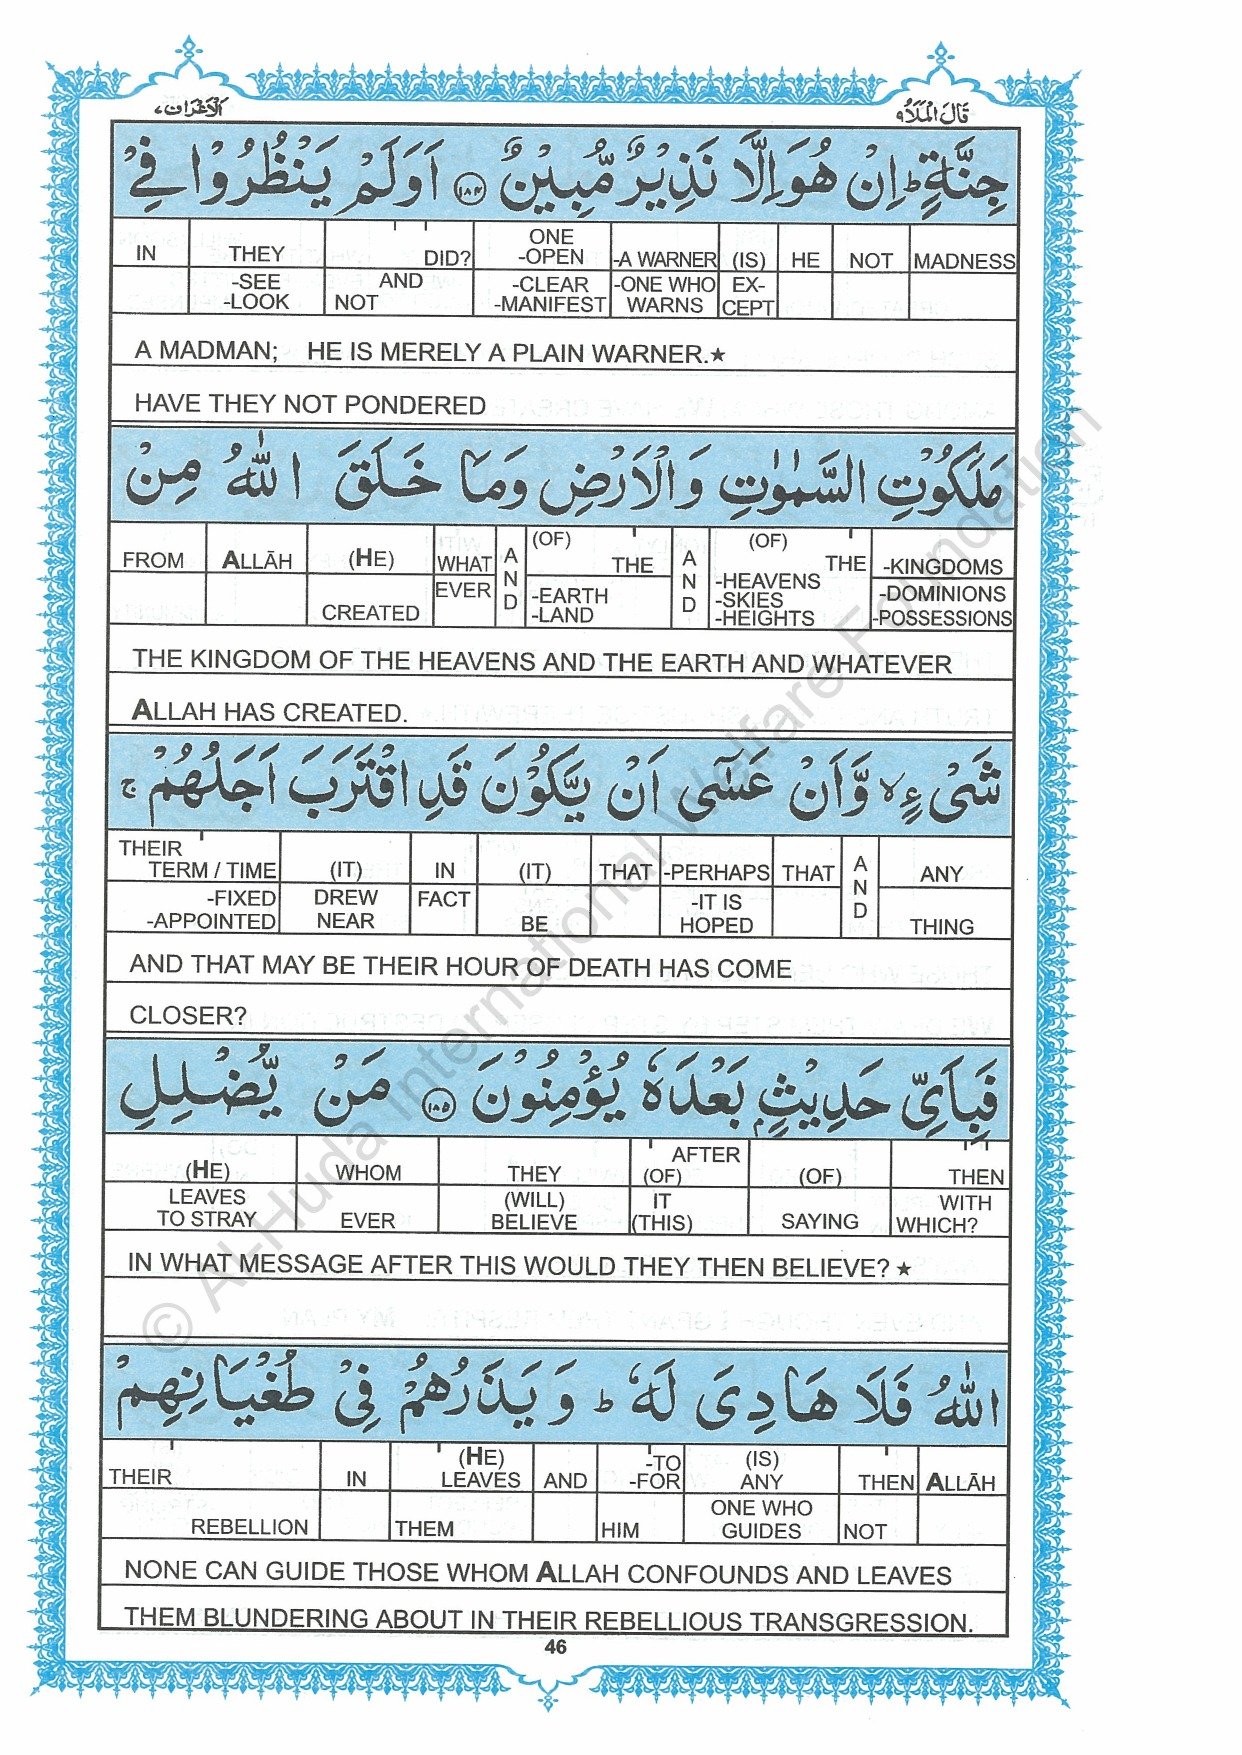 الاعراف ٧
قَالَ الْمَلَاُ ٩
جِنَّةٍ ؕ اِنْ هُوَ اِلَّا نَذِيْرٌ مُّبِيْنٌ ﴿۱۸۴﴾ اَوَلَمْ يَنْظُرُوْا فِيْ
IN THEY DID? ONE -OPEN -A WARNER (IS) HE NOT MADNESS
-SEE -LOOK AND NOT -CLEAR -MANIFEST -ONE WHO WARNS EX-CEPT
A MADMAN; HE IS MERELY A PLAIN WARNER.★
HAVE THEY NOT PONDERED
مَلَكُوْتِ السَّمٰوٰتِ وَالْاَرْضِ وَمَا خَلَقَ اللّٰهُ مِنْ
FROM ALLĀH (HE) WHAT AND (OF) THE AND (OF) THE -KINGDOMS
CREATED EVER -EARTH -LAND -HEAVENS -SKIES -HEIGHTS -DOMINIONS -POSSESSIONS
THE KINGDOM OF THE HEAVENS AND THE EARTH AND WHATEVER
ALLAH HAS CREATED.
شَيْءٍ ۙ وَّاَنْ عَسٰۤى اَنْ يَّكُوْنَ قَدِ اقْتَرَبَ اَجَلُهُمْ ۚ
THEIR TERM / TIME (IT) IN (IT) THAT -PERHAPS THAT AND ANY
-FIXED -APPOINTED DREW NEAR FACT BE -IT IS HOPED THING
AND THAT MAY BE THEIR HOUR OF DEATH HAS COME
CLOSER?
فَبِاَيِّ حَدِيْثٍۭ بَعْدَهٗ يُؤْمِنُوْنَ ﴿۱۸۵﴾ مَنْ يُّضْلِلِ
(HE) WHOM THEY AFTER (OF) (OF) THEN
LEAVES TO STRAY EVER (WILL) BELIEVE IT (THIS) SAYING WITH WHICH?
IN WHAT MESSAGE AFTER THIS WOULD THEY THEN BELIEVE? ★
اللّٰهُ فَلَا هَادِيَ لَهٗ ؕ وَيَذَرُهُمْ فِيْ طُغْيَانِهِمْ
THEIR IN (HE) LEAVES AND -TO -FOR (IS) ANY THEN ALLĀH
REBELLION THEM HIM ONE WHO GUIDES NOT
NONE CAN GUIDE THOSE WHOM ALLAH CONFOUNDS AND LEAVES
THEM BLUNDERING ABOUT IN THEIR REBELLIOUS TRANSGRESSION.
46
© Al-Huda International Welfare Foundation